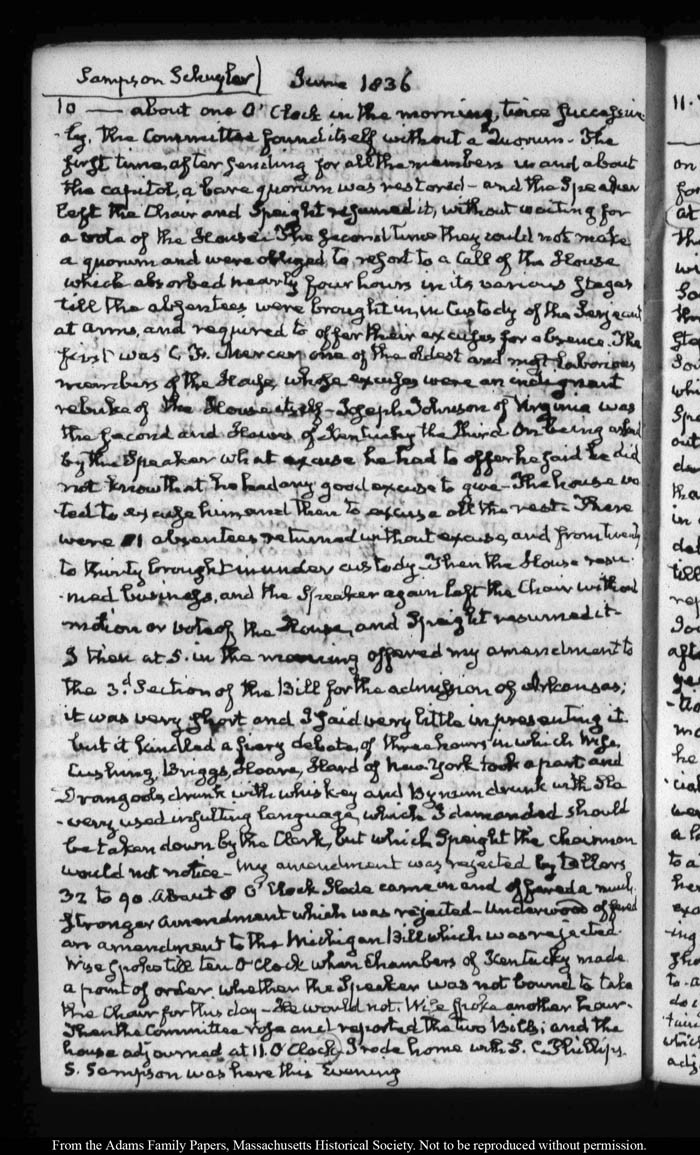 Sampson Schuyler June 1836
10 — about one O' Clock in the morning, twice successive-
ly, the Committee found itself without a Quorum - The
first time, after sending for all the members in and about
the capitol, a bare quorum was restored - and the Speaker
left the Chair and Speight resumed it, without waiting for
a vote of the House. The second time they could not make
a quorum and were obliged to resort to a Call of the House
which absorbed nearly four hours in its various stages
till the absentees were brought in, in Custody of the Sergeant
at arms, and required to offer their excuses for absence. The
first was C. F. Mercer, one of the oldest and most laborious
members of the House, whose excuses were an indignant
rebuke of the House itself - Joseph Johnson of Virginia was
the second and Hawes of Kentucky the third. On being asked
by the Speaker what excuse he had to offer he said he did
not know that he had any good excuse to give - The house vo-
ted to excuse him and then to excuse all the rest. There
were 81 absentees returned without excuse, and from twenty
to thirty brought in under custody - Then the House resu-
-med business, and the Speaker again left the Chair without
motion or vote of the House, and Speight resumed it -
I then at 5. in the morning offered my amendment to
the 3.d Section of the Bill for the admission of Arkansas;
it was very short and I said very little in presenting it
but it kindled a fiery debate, of three hours in which Wise,
Cushing, Briggs, Hoare, Hard of New York took a part and
drunk with whiskey and Bynum drunk with Sla
-very used insulting language, which I demanded should
be taken down by the Clerk, but which Speight the chairman
would not notice - My amendment was rejected by tellers
32 to 90. About 8 O' Clock Slade came in and offered a much
stronger Amendment which was rejected - Underwood offered
an amendment to the Michigan Bill which was rejected.
Wise spoke till ten O'Clock when Chambers of Kentucky made
a point of order whether the Speaker was not bound to take
the Chair for this day - He would not. Wise spoke another hour.
Then the Committee rose and reported the two Bills; and the
house adjourned at 11. O'Clock. I rode home with S. C. Phillips.
S. Sampson was here this Evening
11.
on
for
at
in
From the Adams Family Papers, Massachusetts Historical Society. Not to be reproduced without permission.